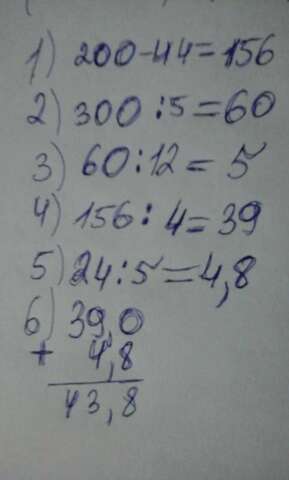 1) 200-44=156
2) 300:5=60
3) 60:12=5
4) 156:4=39
5) 24:5=4,8
6) 39,0
+ 4,8
43,8